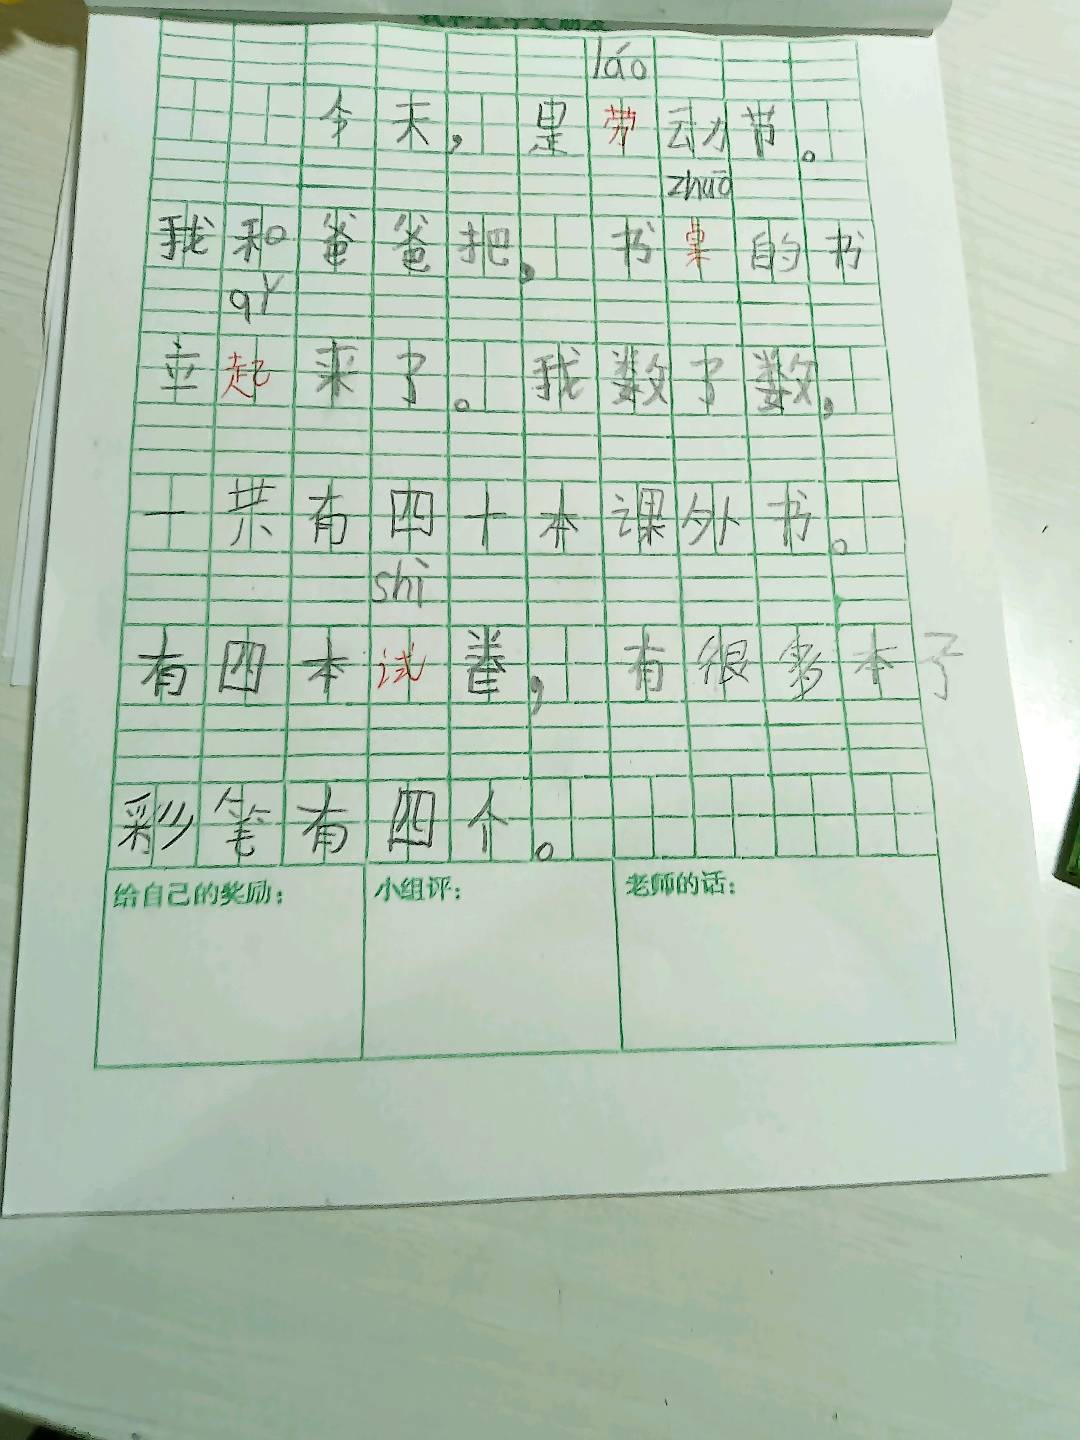 láo
今天，是劳动节。
zhuō
我和爸爸把，书桌的书
qǐ
立起来了。我数了数，
一共有四十本课外书。
shì
有四本试卷，有很多本子
彩笔有四个。
给自己的奖励： 小组评： 老师的话：